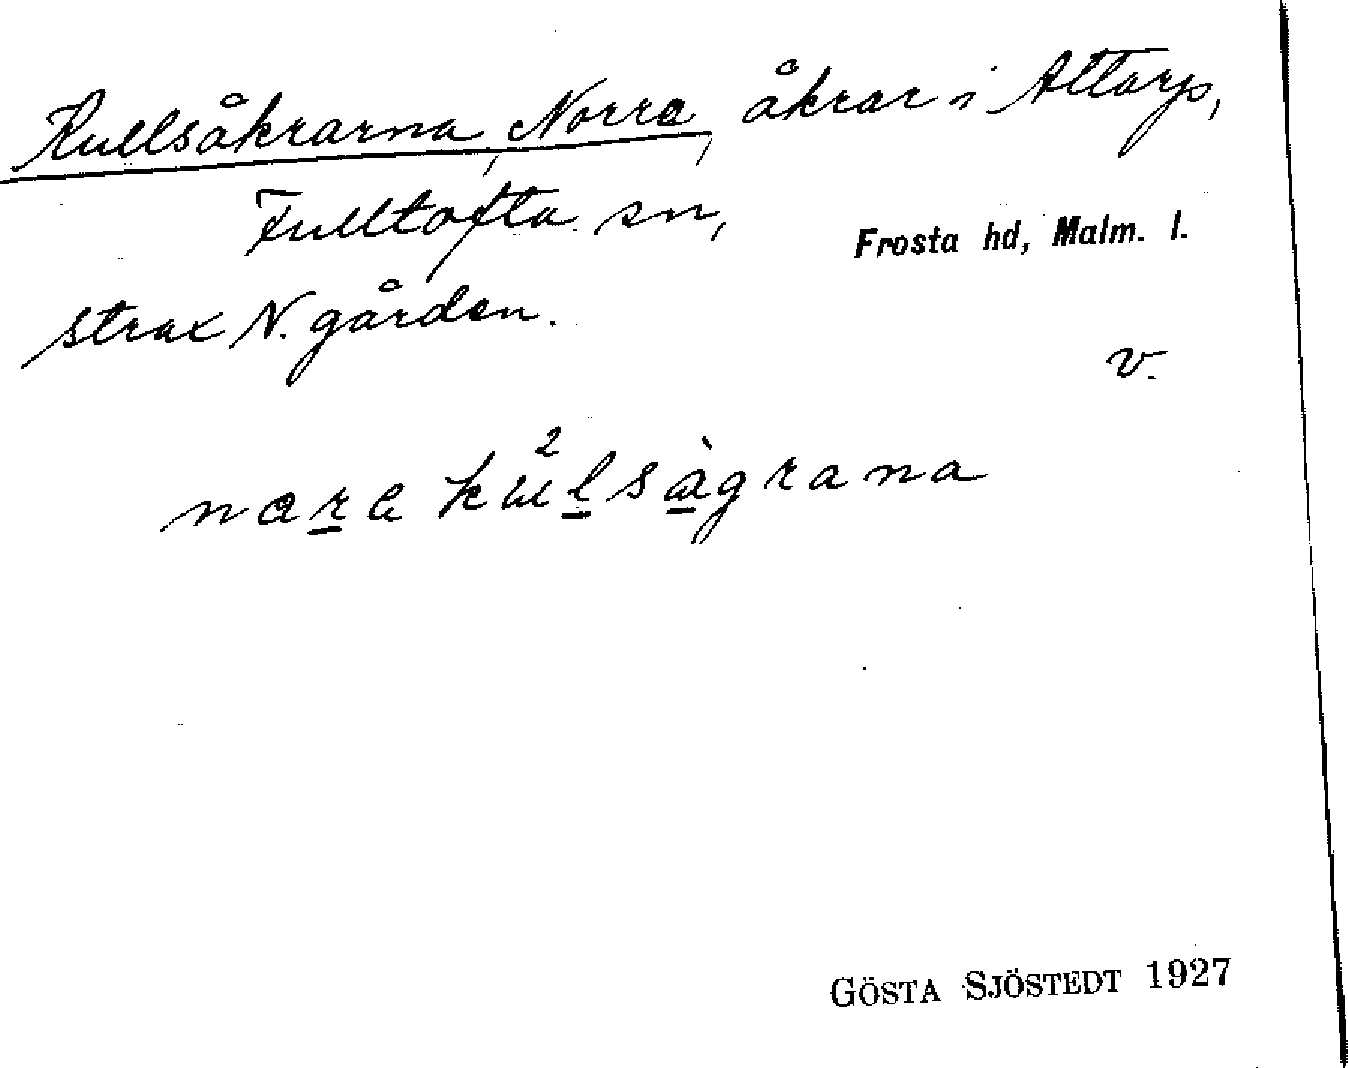 Kullsåkrarna, Norra, åkrar i Attarp,
Fulltofta sn, Frosta hd, Malm. l.
strax N. gården.
v.
Gösta Sjöstedt 1927